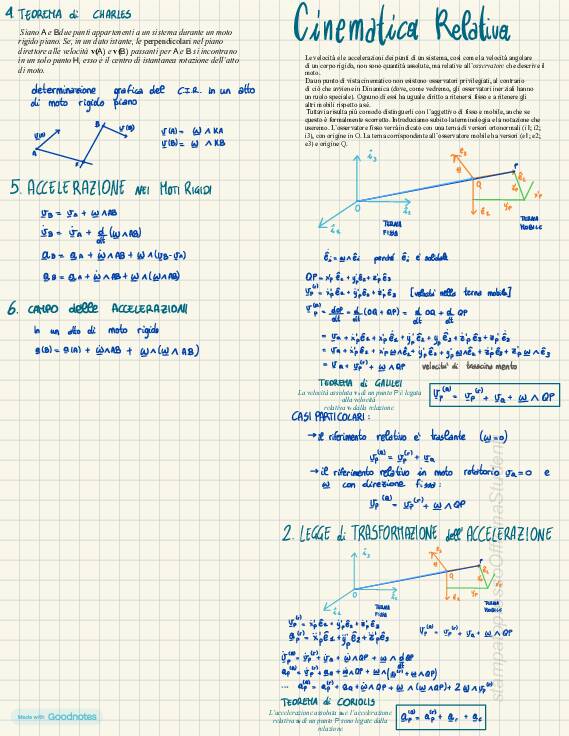 4. TEOREMA di CHARLES
Siano A e B due punti appartenenti a un sistema durante un moto
rigido piano. Se, in un dato istante, le perpendicolari nel piano
direttore alle velocità v(A) e v(B) passanti per A e B si incontrano
in un solo punto H, esso è il centro di istantanea rotazione dell'atto
di moto.
determinazione grafica del C.I.R. in un atto
di moto rigido piano
v(A)
A
B
v(B)
v(A) = ω ∧ KA
v(B) = ω ∧ KB
5. ACCELERAZIONE NEI MOTI RIGIDI
v_B = v_A + ω∧AB
v̇_B = v̇_A + d/dt (ω∧AB)
a_B = a_A + ω̇∧AB + ω∧(v_B-v_A)
a_B = a_A + ω̇∧AB + ω∧(ω∧AB)
6. CAMPO delle ACCELERAZIONI
in un atto di moto rigido
a(B) = a(A) + ω̇∧AB + ω∧(ω∧AB)
Made with Goodnotes
Cinematica Relativa
Le velocità e le accelerazioni dei punti di un sistema, così come la velocità angolare
di un corpo rigido, non sono quantità assolute, ma relative all'osservatore che descrive il
moto.
Da un punto di vista cinematico non esistono osservatori privilegiati, al contrario
di ciò che avviene in Dinamica (dove, come vedremo, gli osservatori inerziali hanno
un ruolo speciale). Ognuno di essi ha uguale diritto a ritenersi fisso e a ritenere gli
altri mobili rispetto a sé.
Tuttavia risulta più comodo distinguerli con l'aggettivo di fisso e mobile, anche se
questo è formalmente scorretto. Introduciamo subito la terminologia e la notazione che
useremo. L'osservatore fisso verrà indicato con una terna di versori ortonormali (i1; i2;
i3), con origine in O. La terna corrispondente all'osservatore mobile ha versori (e1; e2;
e3) e origine Q.
i₃
O
i₂
i₁
TERNA
FISSA
e₃
Q
e₂
P
TERNA
MOBILE
ė_i = ω∧ê_i perché ê_i è solidale
QP = x_P ê₁ + y_P ê₂ + z_P ê₃
v_P^(r) = ẋ_P ê₁ + ẏ_P ê₂ + ż_P ê₃ [velocità nella terna mobile]
v_P^(a) = dOP/dt = d/dt (OQ + QP) = d/dt OQ + d/dt QP
= v_Q + ẋ_P ê₁ + x_P ė₁ + ẏ_P ê₂ + y_P ė₂ + ż_P ê₃ + z_P ė₃
= v_Q + ẋ_P ê₁ + x_P ω∧ê₁ + ẏ_P ê₂ + y_P ω∧ê₂ + ż_P ê₃ + z_P ω∧ê₃
= v_Q + v_P^(r) + ω∧QP velocità di trascinamento
TEOREMA di GALILEI
La velocità assoluta va di un punto P è legata
alla velocità
relativa vr dalla relazione
v_P^(a) = v_P^(r) + v_Q + ω∧QP
CASI PARTICOLARI:
→ il riferimento relativo è traslante (ω=0)
v_P^(a) = v_P^(r) + v_Q
→ il riferimento relativo in moto rotatorio v_Q=0 e
ω con direzione fissa:
v_P^(a) = v_P^(r) + ω∧QP
2. LEGGE di TRASFORMAZIONE dell'ACCELERAZIONE
i₃
O
i₂
i₁
TERNA
FISSA
Q
e₂
P
TERNA
MOBILE
v_P^(r) = ẋ_P ê₁ + ẏ_P ê₂ + ż_P ê₃
a_P^(r) = ẍ_P ê₁ + ÿ_P ê₂ + z̈_P ê₃
v_P^(a) = v_P^(r) + v_Q + ω∧QP
v̇_P^(a) = v̇_P^(r) + v̇_Q + ω̇∧QP + ω∧dQP/dt
a_P^(a) = v̇_P^(r) + a_Q + ω̇∧QP + ω∧(v_P^(r) + ω∧QP)
... a_P^(a) = a_P^(r) + a_Q + ω̇∧QP + ω∧(ω∧QP) + 2ω∧v_P^(r)
TEOREMA di CORIOLIS
L'accelerazione assoluta aa e l'accelerazione
relativa ar di un punto P sono legate dalla
relazione
a_P^(a) = a_P^(r) + a_τ + a_c